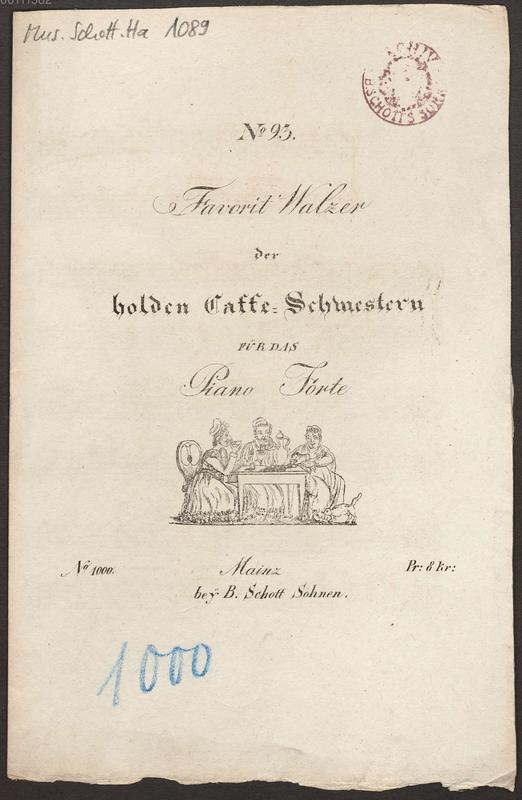 Mus. Schott. Ha 1089
ARCHIV
B. SCHOTT'S SÖHNE
No 93.
Favorit Walzer
der
holden Caffe=Schwestern
FÜR DAS
Piano Forte
No 1000.
Mainz
Pr: 8 kr:
beÿ B. Schott Söhnen.
1000